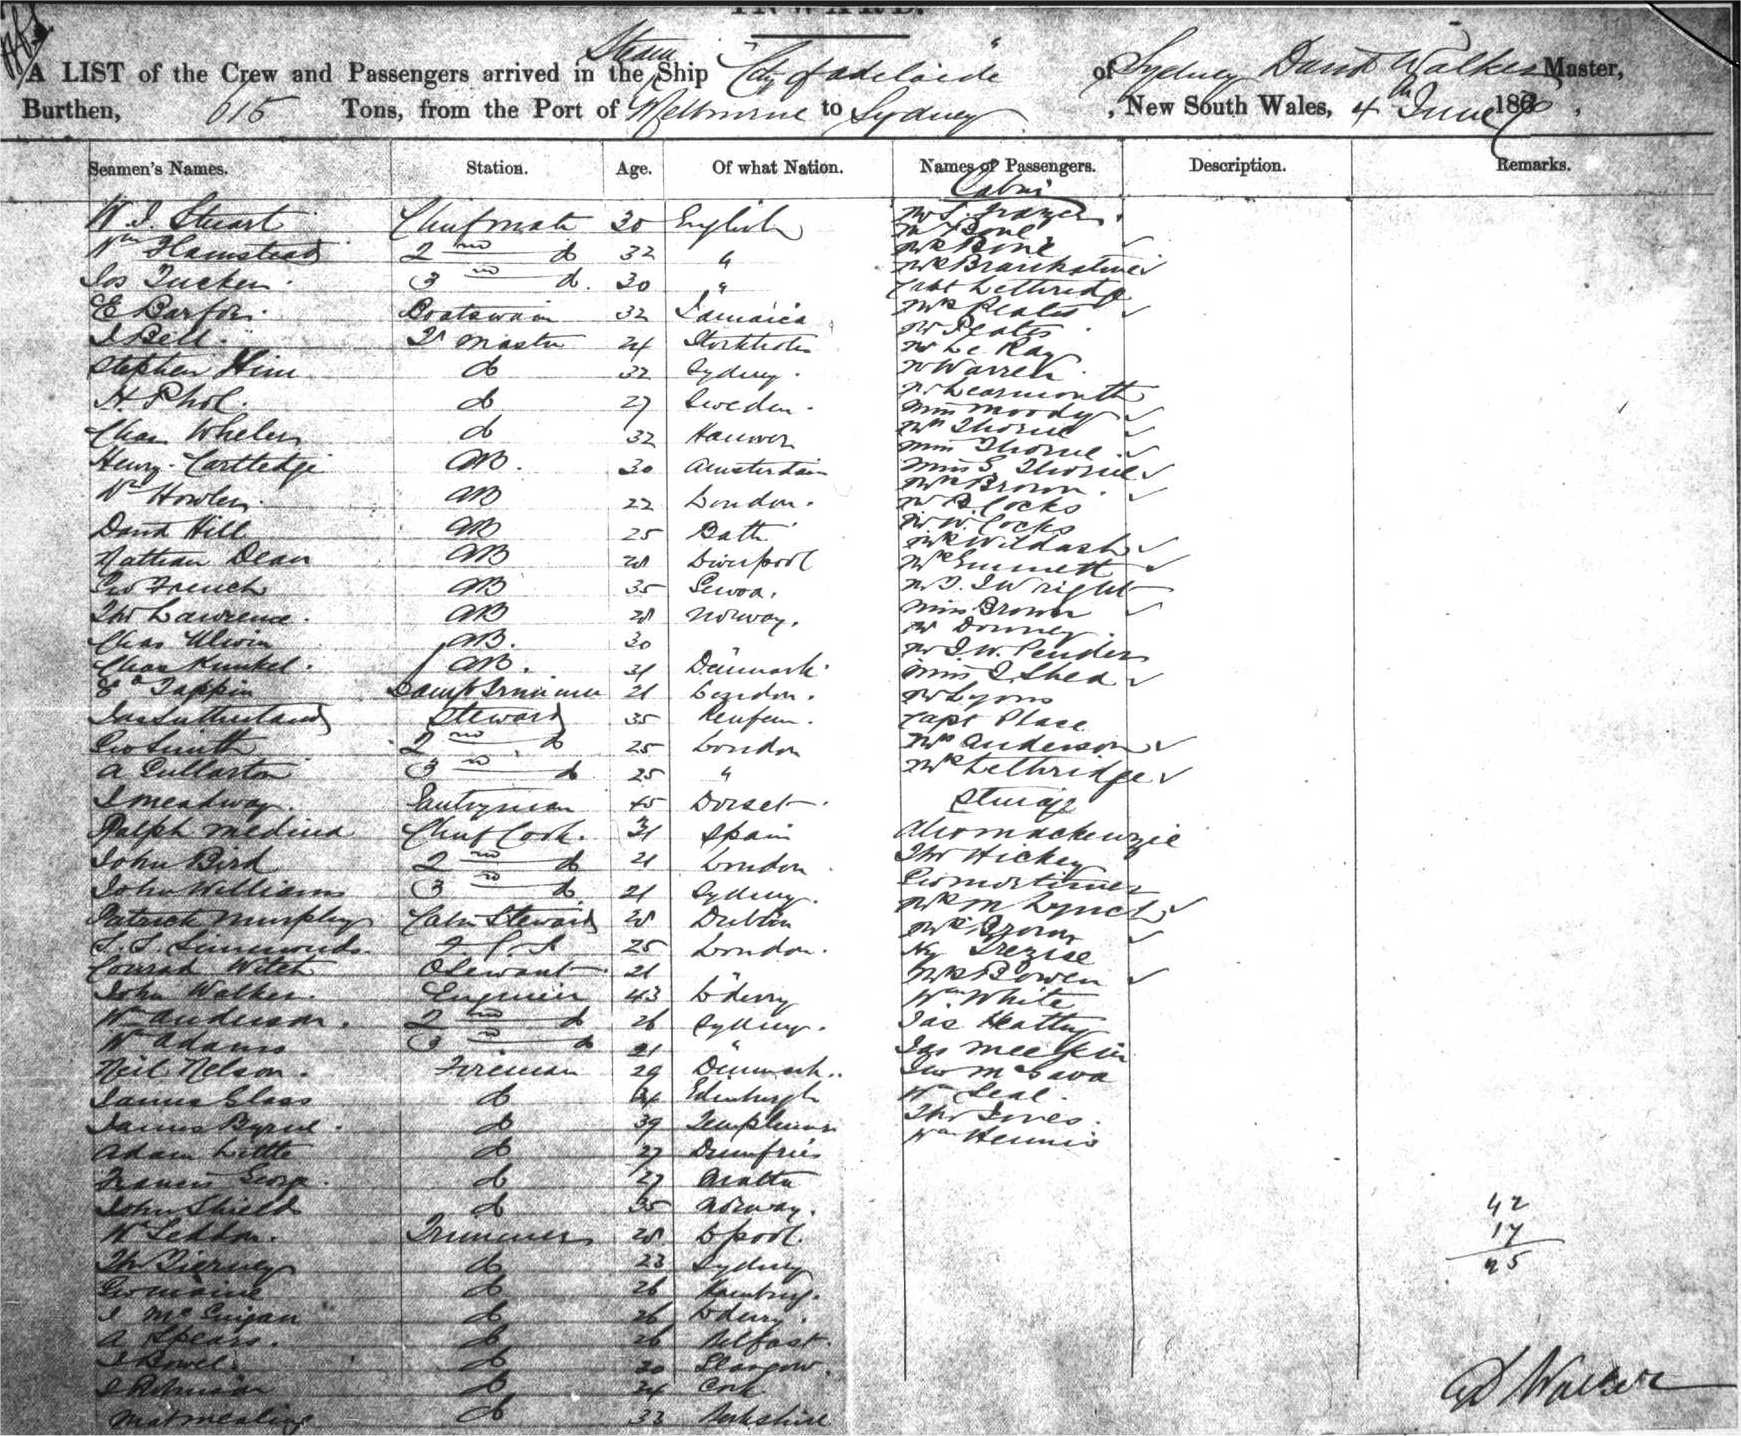 INWARD.
Steam
A LIST of the Crew and Passengers arrived in the Ship "City of Adelaide" of Sydney David Walker Master,
Burthen, 615 Tons, from the Port of Melbourne to Sydney, New South Wales, 4th June 186
Seamen's Names. Station. Age. Of what Nation. Names of Passengers. Description. Remarks.
Cabin
W. J. Stuart Chief mate 30 English
Wm Hamstead 2nd do 32 "
Jos Tucker 3rd do. 30 "
E Barfoi Boatswain 32 Jamaica
J Bell Qr master 24 Stockholm
Stephen Him do 32 Sydney.
H. Phol. do 27 Sweden.
Chas Whelen do 32 Hanover
Henry Cartledge AB. 30 Amsterdam
Wm Howlen AB 22 London.
David Hill AB 25 Bath
Nathan Dean AB 28 Liverpool
Geo French AB 35 Genoa.
Thos Lawrence. AB 28 Norway.
Chas Ulwin AB. 30
Chas Kunkel. AB. 31 Denmark
Ed Tappin Lamp Trimmer 21 London.
Jas Sutherland Steward 35 Renfrew.
Geo Smith 2nd do 25 London
A Cullarton 3rd do 25 "
J Meadway. Pantryman 45 Dorset
Ralph Medina Chief Cook. 31 Spain
John Bird 2nd do 21 London
John Williams 3rd do 21 Sydney.
Patrick Murphy Cabin Steward 28 Dublin
S. S. Simmonds 25 London.
Conrad Witch 21 "
John Walker. Engineer 43 L derry
Wm Anderson. 2nd do 26 Sydney.
Wm Adams 3rd do 21 "
Neil Nelson. Fireman 29 Denmark..
James Glass do 34 Edinburgh
James Byrne do 39
Adam Little do 27 Dumfries
Francis George. do 27 Malta
John Shield do 35 Norway.
Wm Seddon. Trimmer 28 L pool.
Thos Tierney do 23 Sydney
Geo Maine do 26 Hamburg.
J McGuigan do 26 L derry.
A Spears. do 26 Belfast.
J Rowel. do 30 Glasgow.
J Robinson do 24 Cork
Mat Mealing do 33 Berkshire
Mr S. Frazer
Mr Bone
Mrs Bone
Mrs Brankstone
Capt Lethridge
Mrs Plates
Mr Plates
Mr Le Ray
Mr Warren
Mr Learmonth
Miss Moody
Mrs Thorne
Miss Thorne
Miss S Thorne
Mrs Brown
Mr B. Cocks
Mr W. Cocks
Mrs Wildash
Mrs Emmett
Mr T. J Wright
Miss Brown
Mr Downey
Mr J. W. Pender
Miss J. Shea
Mr Lyons
Capt Place
Mrs Anderson
Mrs Lethridge
Steerage
Alex Mackenzie
Thos Hickey
Geo Mortimer
Mrs M Lynch
Mrs Brown
Hy Trezise
Mrs Bowen
Wm. White
Jas Heatty
Jas Meekin
Jno McGava
Wm Seal.
Thos Jones.
Wm Hennis
42
17
25
D Walker